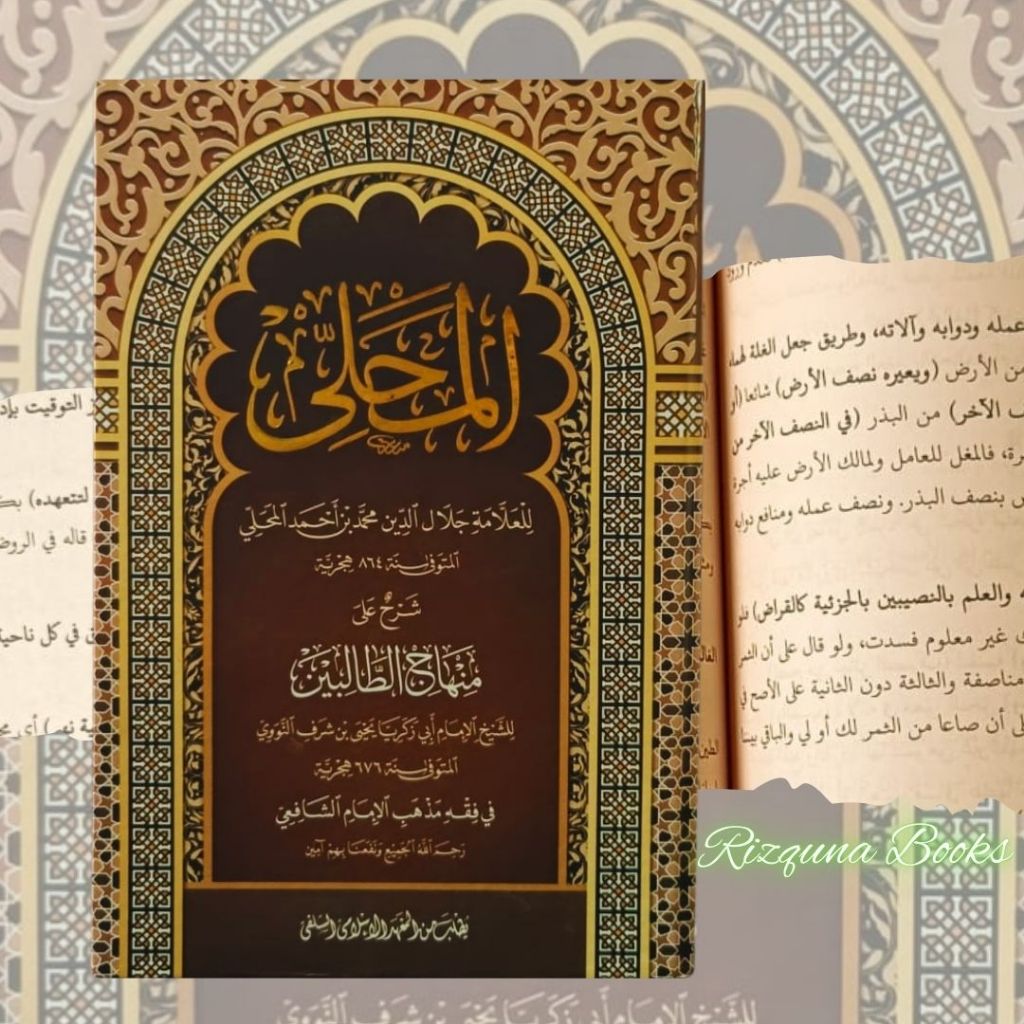 المَحَلِّى
لِلْعَلَّامَةِ جَلَالِ الدِّينِ مُحَمَّدِ بْنِ أَحْمَدَ الْمَحَلِّي
المتوفى سنة ٨٦٤ هِجْرِيَّة
شَرْحٌ عَلَى
مِنْهَاجُ الطَّالِبِيْنَ
لِلشَّيْخِ الْإِمَامِ أَبِي زَكَرِيَّا يَحْيَى بْنِ شَرَفِ النَّوَوِي
المتوفى سنة ٦٧٦ هِجْرِيَّة
فِي فِقْهِ مَذْهَبِ الْإِمَامِ الشَّافِعِيّ
رَحِمَ اللّٰهُ الْجَمِيْعَ وَنَفَعَنَا بِهِمْ آمِيْن
يطلب من المعهد الإسلامى السلفى
عمله ودوابه وآلاته، وطريق جعل الغلة لهما،
من الأرض (ويعيره نصف الأرض) شائعا (أو
الآخر) من البذر (في النصف الآخر من
فالمغل للعامل ولمالك الأرض عليه أجرة
بنصف البذر. ونصف عمله ومنافع دوابه
والعلم بالنصيبين بالجزئية كالقراض) فلو
غير معلوم فسدت، ولو قال على أن الثمر
مناصفة والثالثة دون الثانية على الأصح في
أن صاعا من الثمر لك أو لي والباقي بيننا
التوقيت
لتتعهده)
قاله في
في كل ناحية
Rizquna Books
للشيخ الإمام أبي زكريا يحيى بن شرف النووي